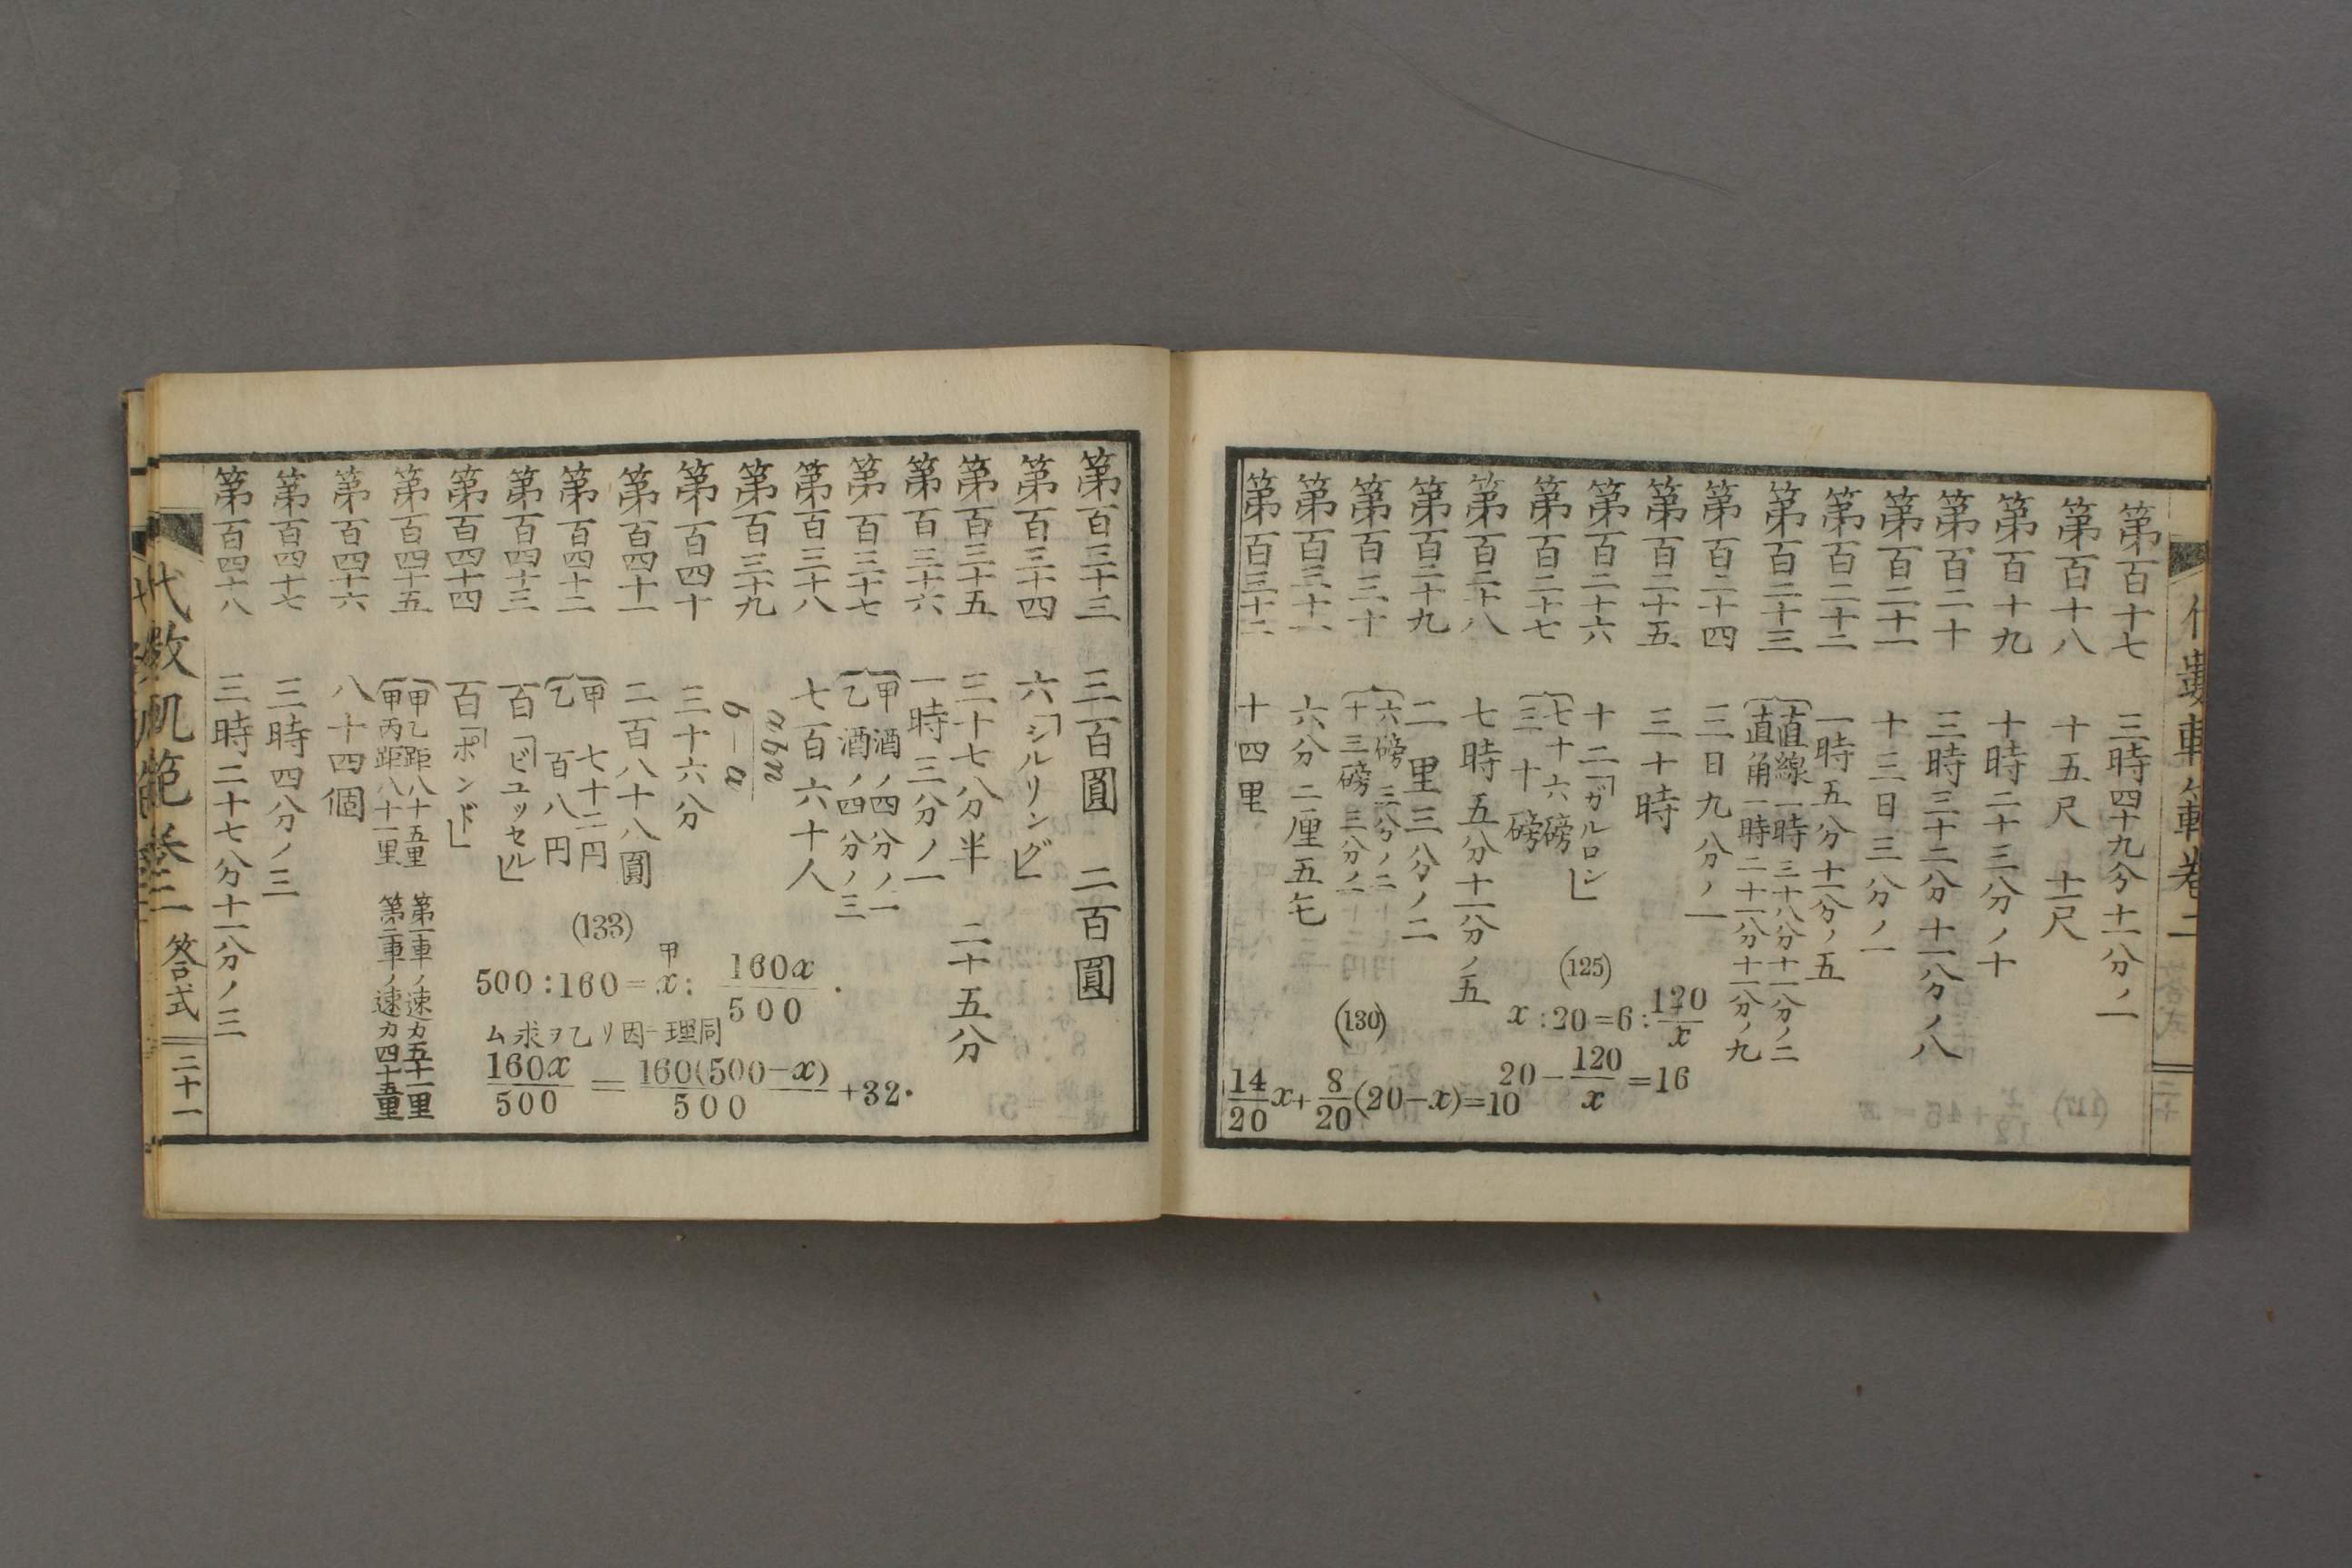 第百十七 三時四十九分十一分ノ一
第百十八 十五尺 十二尺
第百十九 十時二十三分ノ十
第百二十 三時三十二分十一分ノ八
第百二十一 十三日三分ノ一
第百二十二 一時五分十一分ノ五
第百二十三 直線一時三十八分十一分ノ二
直角一時二十一分十一分ノ九
第百二十四 三日九分ノ一
第百二十五 三十時
第百二十六 十二「ガルロン」
第百二十七 七十六磅
三十磅
第百二十八 七時五分十一分ノ五
第百二十九 二里三分ノ二
第百三十 六磅三分ノ二
十三磅三分ノ一
第百三十一 六分二厘五毛
第百三十二 十四里
(125)
x:20=6:120/x
20-120/x=16
(130)
14/20x+8/20(20-x)=10
第百三十三 三百圓 二百圓
第百三十四 六「シルリング」
第百三十五 三十七分半 二十五分
第百三十六 一時三分ノ一
第百三十七 甲酒ノ四分ノ一
乙酒ノ四分ノ三
第百三十八 七百六十人
第百三十九 abn/b-a
第百四十 三十六分
第百四十一 二百八十八圓
第百四十二 甲 七十二円
乙 百八円
第百四十三 百「ビユッセル」
第百四十四 百「ポンド」
第百四十五 甲乙距八十五里 第一車ノ速力五十一里
甲丙距八十一里 第二車ノ速力四十五里
第百四十六 八十四個
第百四十七 三時四分ノ三
第百四十八 三時二十七分十一分ノ三
(133)
甲
500:160=x:160x/500.
同理ニ因リ乙ヲ求ム
160x/500=160(500-x)/500+32.
代数軌範卷二 答式 二十一